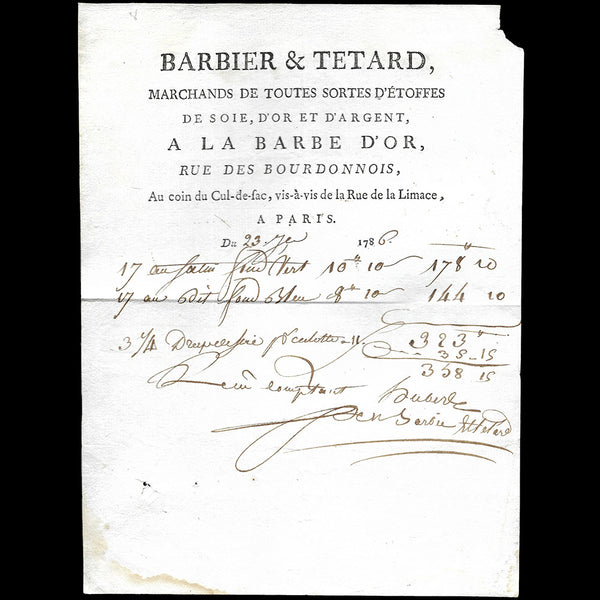 BARBIER & TETARD,
MARCHANDS DE TOUTES SORTES D'ÉTOFFES
DE SOIE, D'OR ET D'ARGENT,
A LA BARBE D'OR,
RUE DES BOURDONNOIS,
Au coin du Cul-de-sac, vis-à-vis de la Rue de la Limace,
A PARIS.
Du 23 1786.
17 au Satin fond Vert 10 10 178 10
17 au dit fond Bleu 8 10 144 10
323
3 1/4 Drap de soie pr culotte 11 35 15
358 15
Reçu comptant
Barbier et Tetard